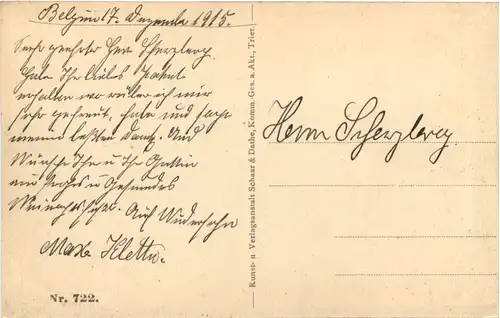 Belgien 17. Dezember 1915.
Sehr geehrter Herr Scherzberg.
Habe Ihr liebes Paket
erhalten wo rüber ich mir
sehr gefreut, habe und sage
meine besten Dank. Und
Wünsche Ihr u Ihr Gattin
ein u Gesundes
Weihnachtsfest. Auf Wiedersehn
Max
Nr. 722.
Kunst- u Verlagsanstalt Schaar & Dathe, Komm. Ges. a. Akt., Trier.
Herrn Scherzberg